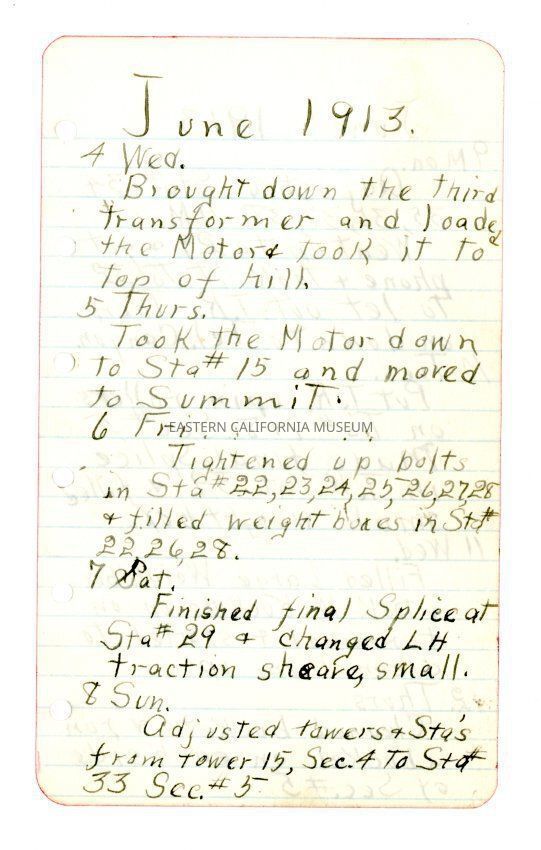 June 1913.
4 Wed.
Brought down the third
transformer and loaded
the Motor & took it to
top of hill.
5 Thurs.
Took the Motor down
to Sta # 15 and moved
to Summit.
6 Fri.
EASTERN CALIFORNIA MUSEUM
Tightened up bolts
in Sta # 22, 23, 24, 25, 26, 27, 28
& filled weight boxes in Sta #
22, 26, 28.
7 Sat.
Finished final Splice at
Sta # 29 & changed LH
traction sheave, small.
8 Sun.
Adjusted towers & Sta's
from Tower 15, Sec. 4 To Sta #
33 Sec. # 5